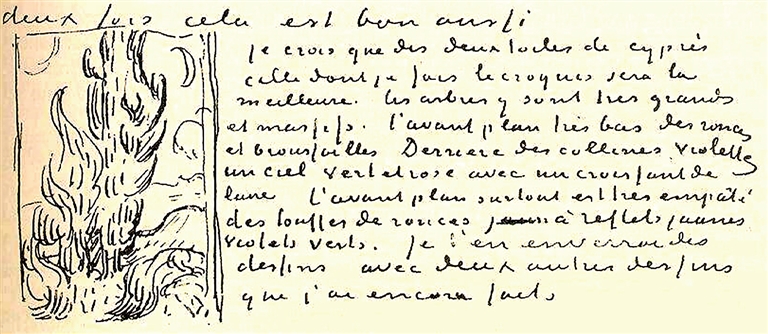 deux fois cela est bon aussi
je crois que des deux toiles de cyprès
celle dont je fais le croquis sera la
meilleure. les arbres y sont très grands
et massifs. l'avant plan très bas des ronces
et broussailles Derrière des collines violettes
un ciel vert et rose avec un croissant de
lune l'avant plan surtout est très empâté
des touffes de ronces à reflets jaunes
violets verts. je t'en enverrai des
dessins avec deux autres dessins
que j'ai encore faits